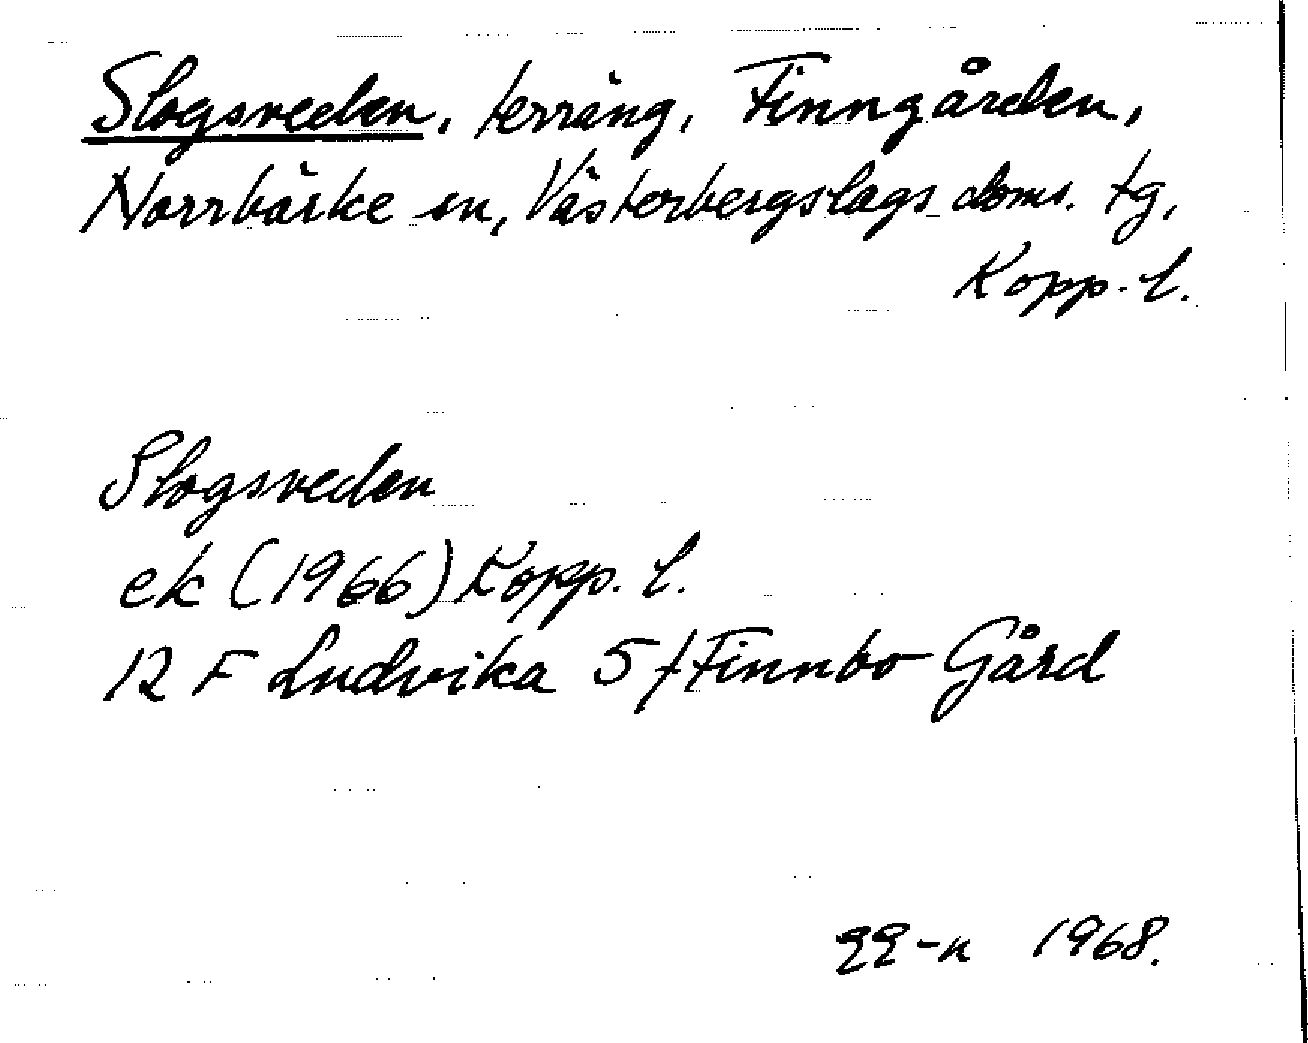 Slogsveden, terräng, Finngården,
Norrbärke sn, Västerbergslags doms. tg,
Kopp. l.
Slogsveden
ek (1966) Kopp. l.
12 F Ludvika 5 f Finnbo Gård
1968.